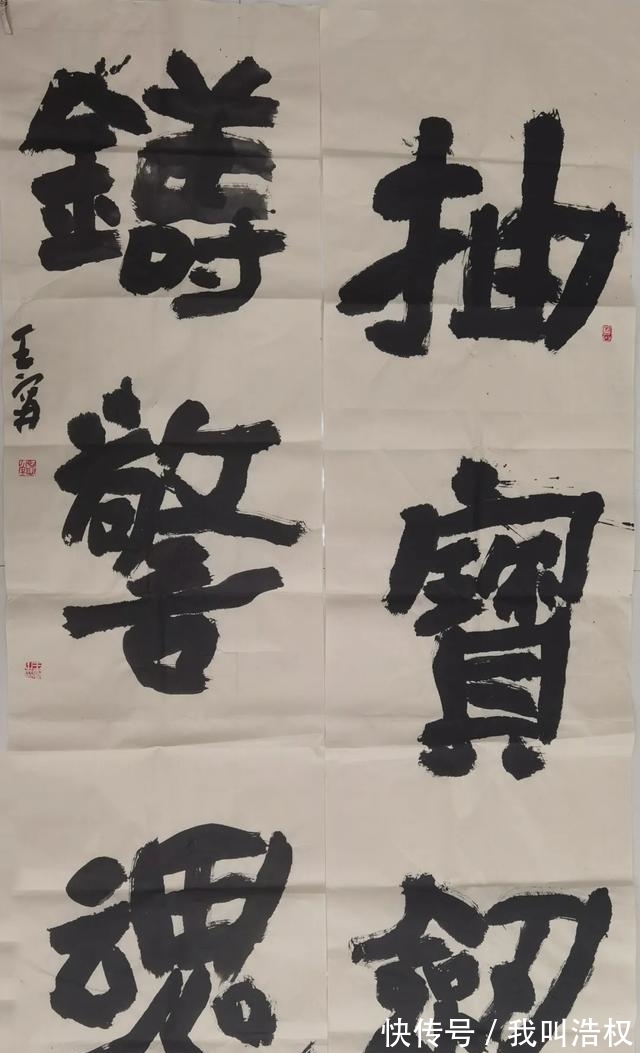 抽寶劒
鑄警魂
王
快传号/我叫浩权